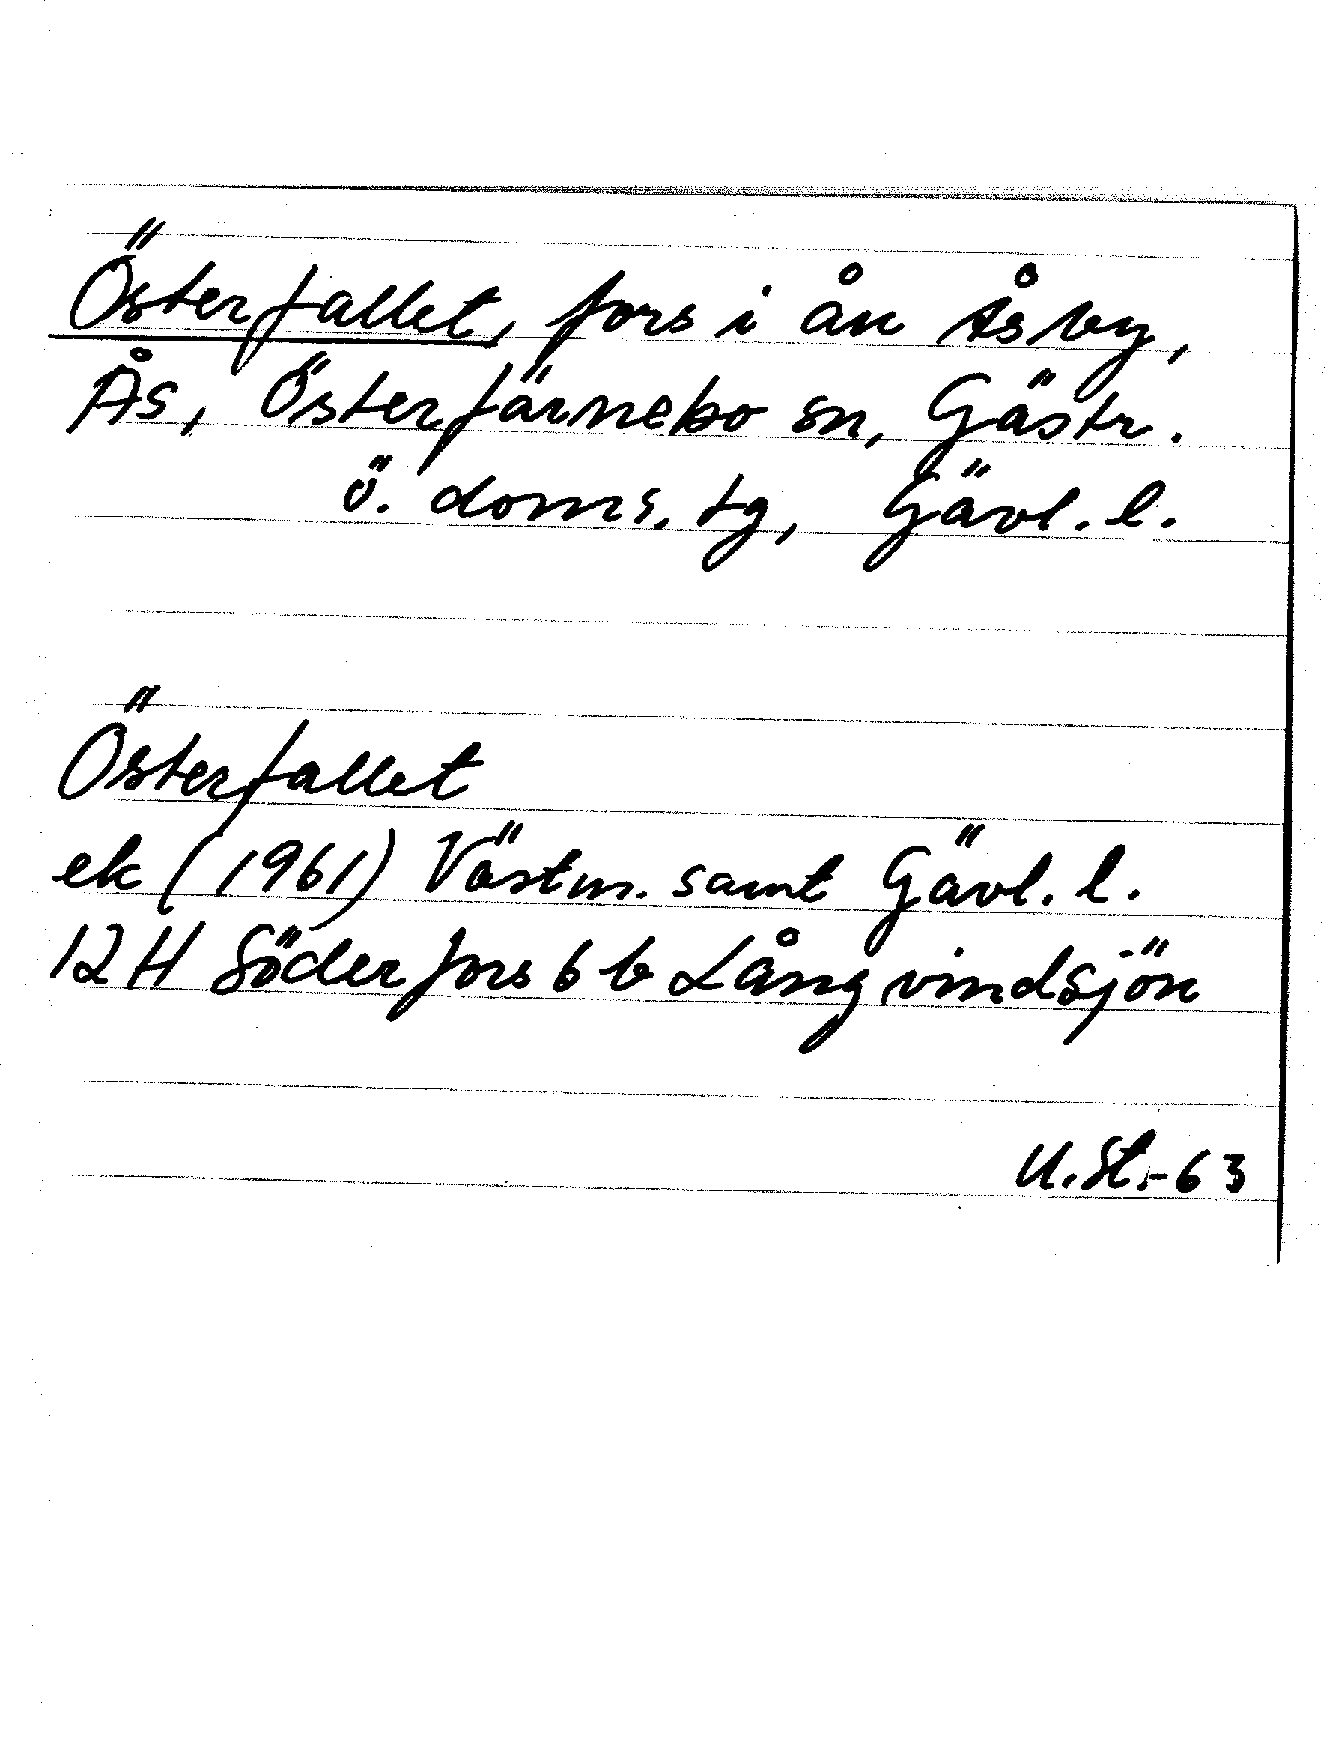 Österfallet, fors i ån Åsby,
Ås, Österfärnebo sn, Gästr.
ö. doms. tg, Gävl. l.
Österfallet
ek (1961) Västm. samt Gävl. l.
12 H Söderfors 6 b Långvindsjön
U.St.-63